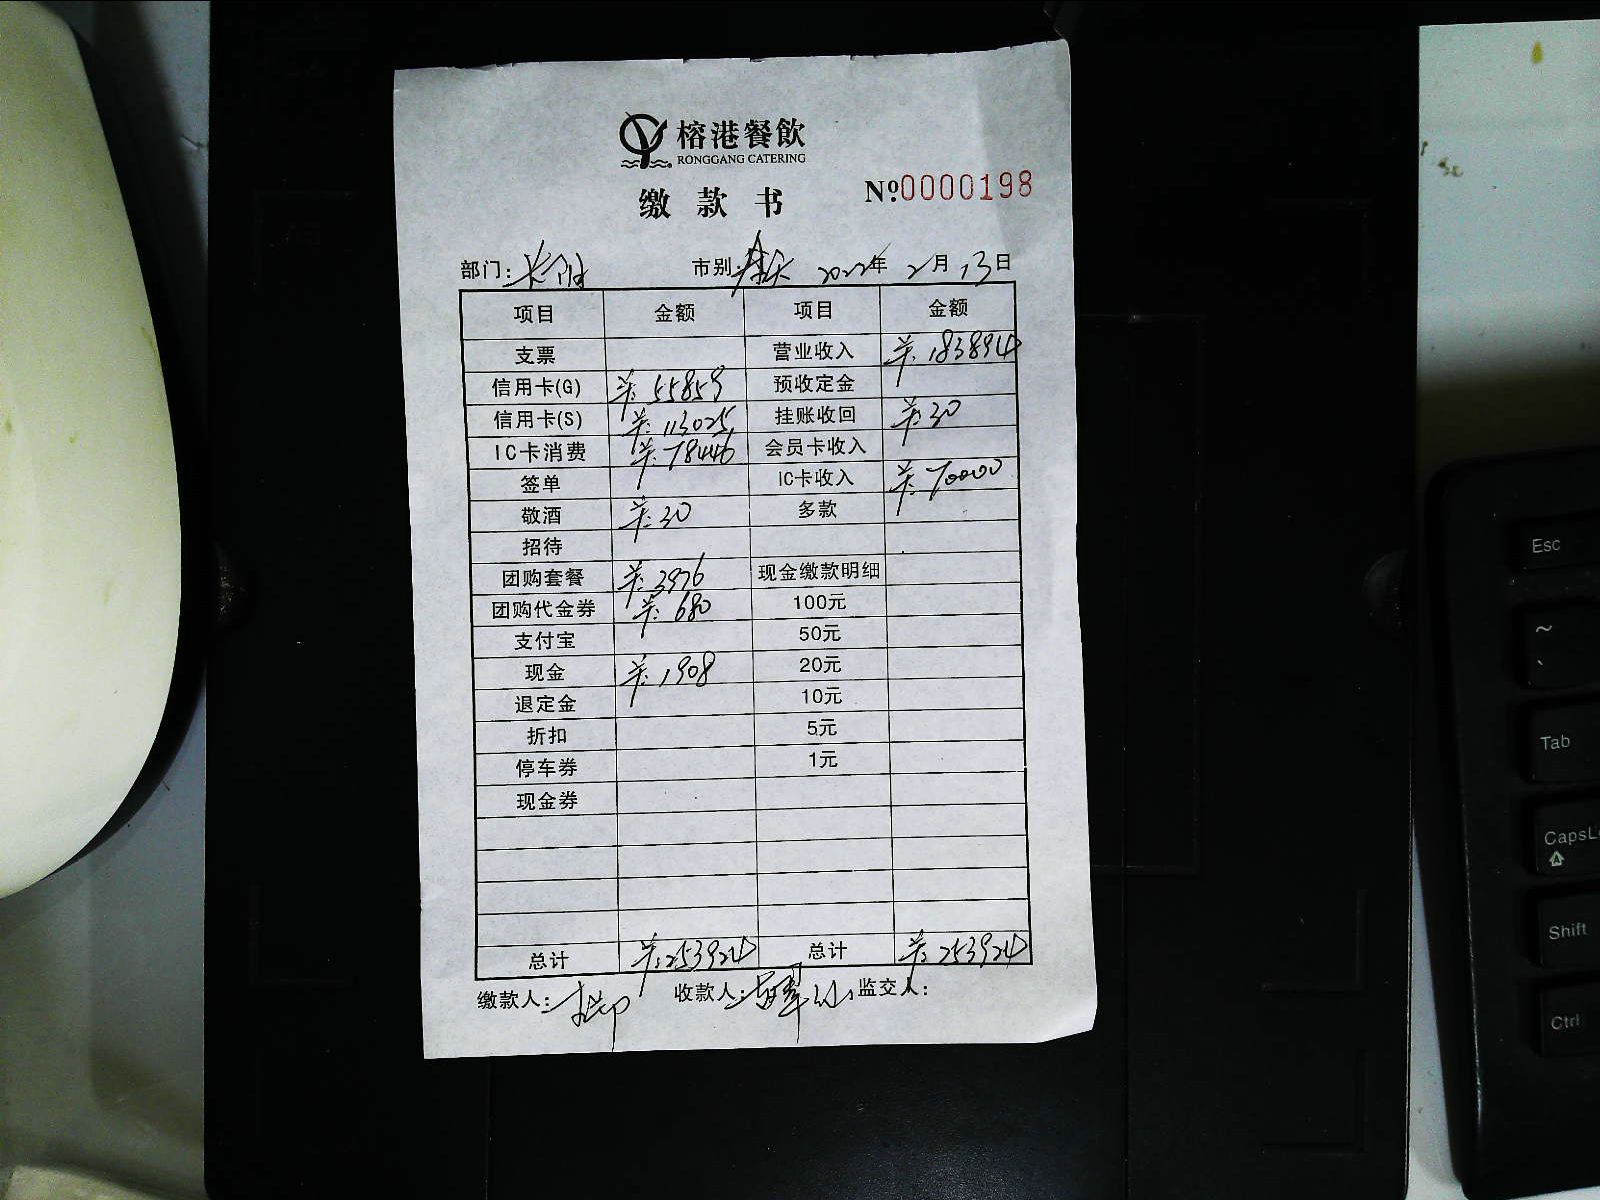 榕港餐飲
RONGGANG CATERING
缴款书 №0000198
部门: 市别: 2022年 2月 13日
项目 金额 项目 金额
支票 营业收入 羊:183894
信用卡(G) 羊:55859 预收定金
信用卡(S) 羊:113025 挂账收回 羊:30
IC卡消费 羊:78446 会员卡收入
签单 IC卡收入 羊:70000
敬酒 羊:30 多款
招待
团购套餐 羊:3976 现金缴款明细
团购代金券 羊:680 100元
支付宝 50元
现金 羊:1908 20元
退定金 10元
折扣 5元
停车券 1元
现金券
总计 羊:253924 总计 羊:253924
缴款人: 收款人: 监交人:
Esc
~
`
Tab
CapsL
A
Shift
Ctrl